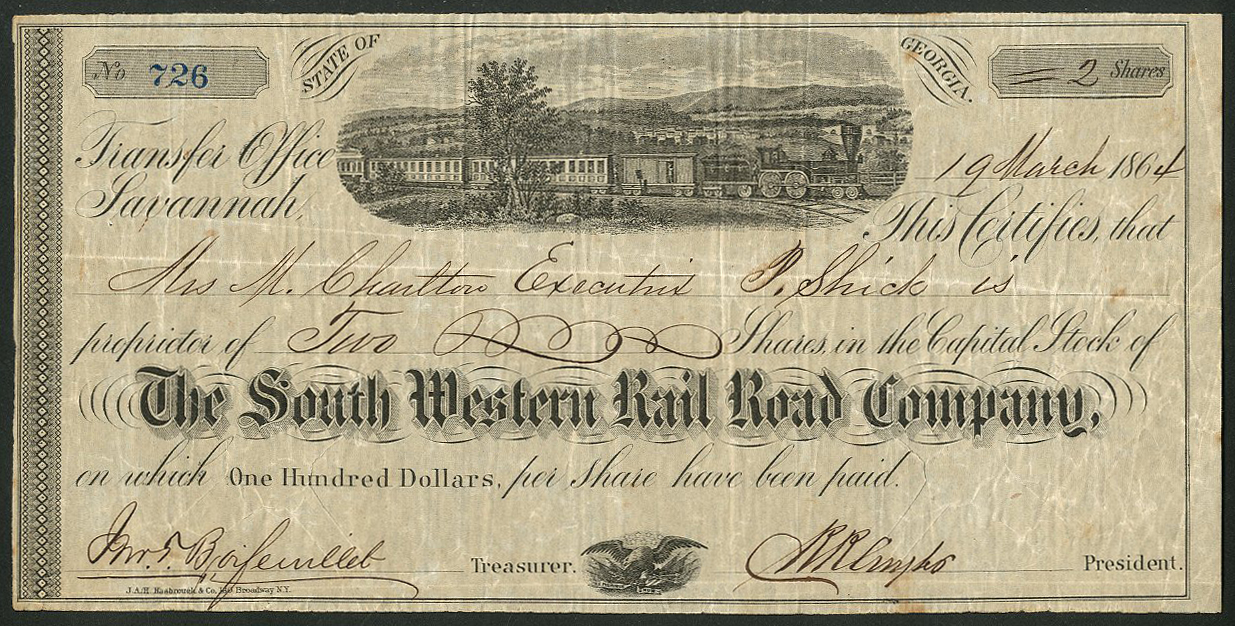 No 726
STATE OF GEORGIA.
= 2 Shares
Transfer Office
Savannah,
19 March 1864
This Certifies, that
Mrs M. Charlton Executrix P. Shick is
proprietor of Two Shares, in the Capital Stock of
The South Western Rail Road Company,
on which One Hundred Dollars, per share have been paid.
Jno. T. Boifeuillet Treasurer.
President.
J.A.H. Hasbrouck & Co. Broadway N.Y.